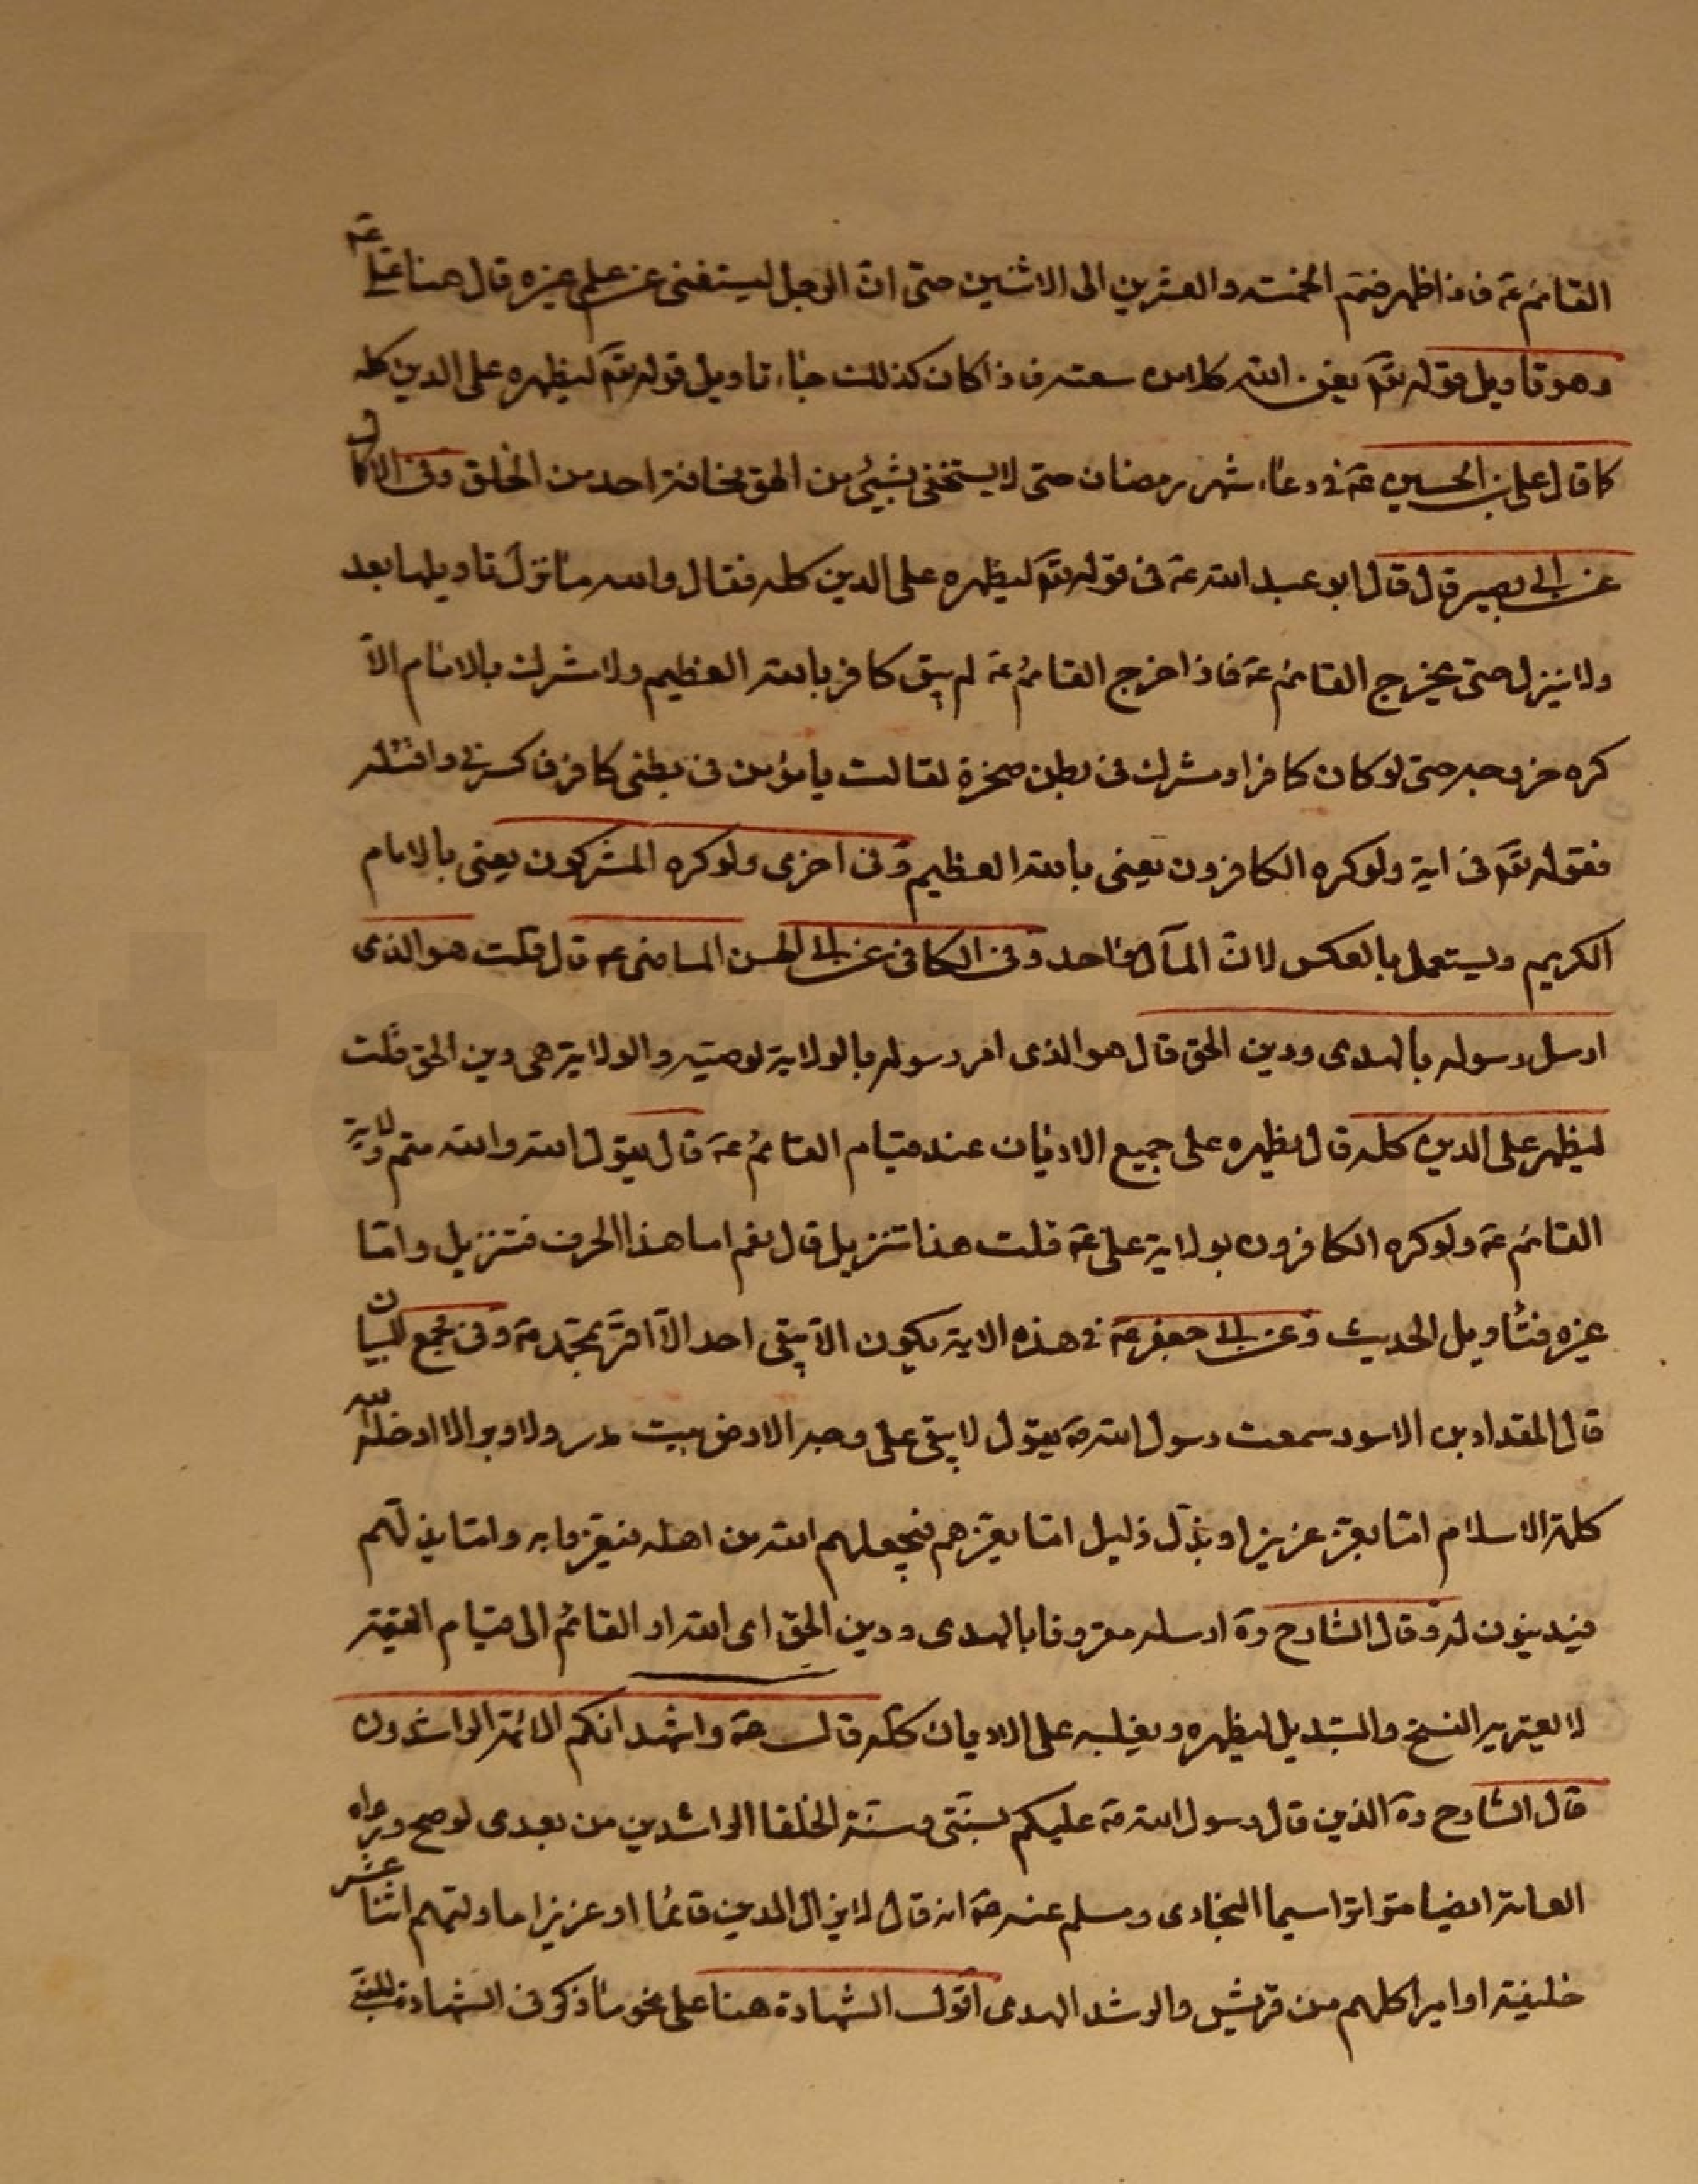 القائم عۤ فاذا ظهر ضم الخمسة والعشرين الى الاثنين حتى ان الرجل ليستغنى عن علم غيره قال هنا علىّ عۤ
وهو تاويل قوله تعۤ يغن الله كلا من سعته فاذا كان كذلك جاۤء تاويل قوله تعۤ ليظهره على الدين كله
كما قال على بن الحسين عۤ فى دعاۤء شهر رمضان حتى لا يستخفى بشيئ من الحق مخافة احد من الخلق وفى الاكمال
عن ابى بصير قال قال ابو عبد الله عۤ فى قوله تعۤ ليظهره على الدين كله فقال والله ما نزل تاويلها بعد
ولا ينزل حتى يخرج القائم عۤ فاذا خرج القائم عۤ لم يبق كافر بالله العظيم ولا مشرك بالامام الاّ
كره خروجه حتى لو كان كافر او مشرك فى بطن صخرة لقالت يا مؤمن فى بطنى كافر فاكسرنى واقتله
فقوله تعۤ فى اية ولو كره الكافرون يعنى بالله العظيم وفى اخرى ولو كره المشركون يعنى بالامام
الكريم ويستعمل بالعكس لان المآل واحد وفى الكافى عن ابى الحسن الماضى عۤ قال قلت هو الذى
ارسل رسوله بالهدى ودين الحق قال هو الذى امر رسوله بالولاية لوصيته والولاية هى دين الحق قلت
ليظهر على الدين كله قال يظهره على جميع الاديان عند قيام القائم عۤ قال يقول الله والله متم ولاية
القائم عۤ ولو كره الكافرون بولاية على عۤ قلت هذا تنزيل قال نعم اما هذا الحرف فتنزيل وامّا
غيره فتاويل الحديث وعن ابى جعفر عۤ فى هذه الاية يكون الا يبقى احد الاّ اقرّ بمحمد صۤ وفى مجمع البيان
قال المقداد بن الاسود سمعت رسول الله صۤ يقول لا يبقى على وجه الارض بيت مدر ولا وبر الا ادخله الله
كلمة الاسلام امّا بعزّ عزيز او بذلّ ذليل امّا يعزهم فيجعلهم الله من اهله فيعزوا به وامّا يذلهم
فيدينون له وقال الشارح رهۤ ارسله معروفا بالهدى ودين الحق اى الله او القائم الى قيام القيمة
لا يعتريه النسخ والتبديل ليظهره ويغلبه على الاديان كله قال صۤ واشهد انكم الائمة الراشدون
قال الشارح رهۤ الذين قال رسول الله صۤ عليكم بسنّتى وسنّة الخلفا الراشدين من بعدى لو صح وبراه
العامة ايضا متواترا سيما البخارى ومسلم عنه صۤ انه قال لا يزال الدين قائما او عزيزا ما وليهم اثنا عشر
خليفة او اميرا كلهم من قريش والرشد الهدى اقول الشهادة هنا على نحو ما ذكر فى الشهادة للنبى